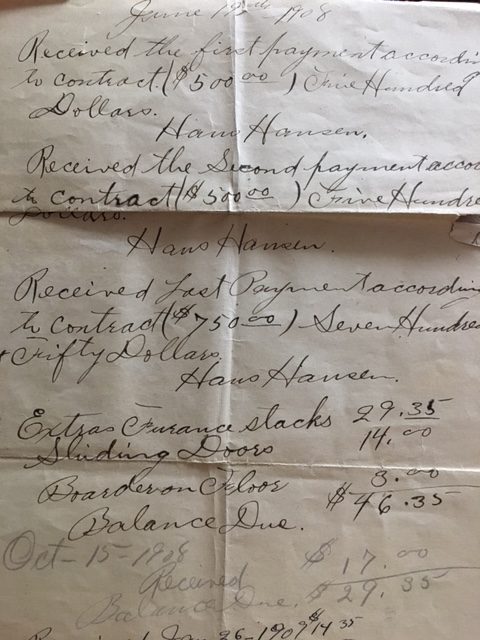 June 1908
Received the first payment accordin
to contract ($500 00) Five Hundred
Dollars.
Hans Hansen.
Received the Second payment accor
to contract ($500 00) Five Hundre
Dollars.
Hans Hansen.
Received Last Payment according
to contract ($750.00) Seven Hundred
+ Fifty Dollars.
Hans Hansen.
Extras Furance stacks 29.35
Sliding Doors 14.00
Boarder on Floor 3.00
Balance Due. $46.35
Oct-15-1908
Received $17.00
Balance Due. $29.35
Received Jan 26-1909 $14 35